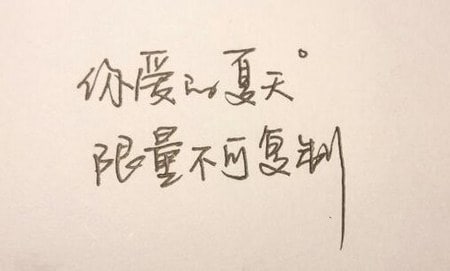 你爱的夏天。
限量不可复制